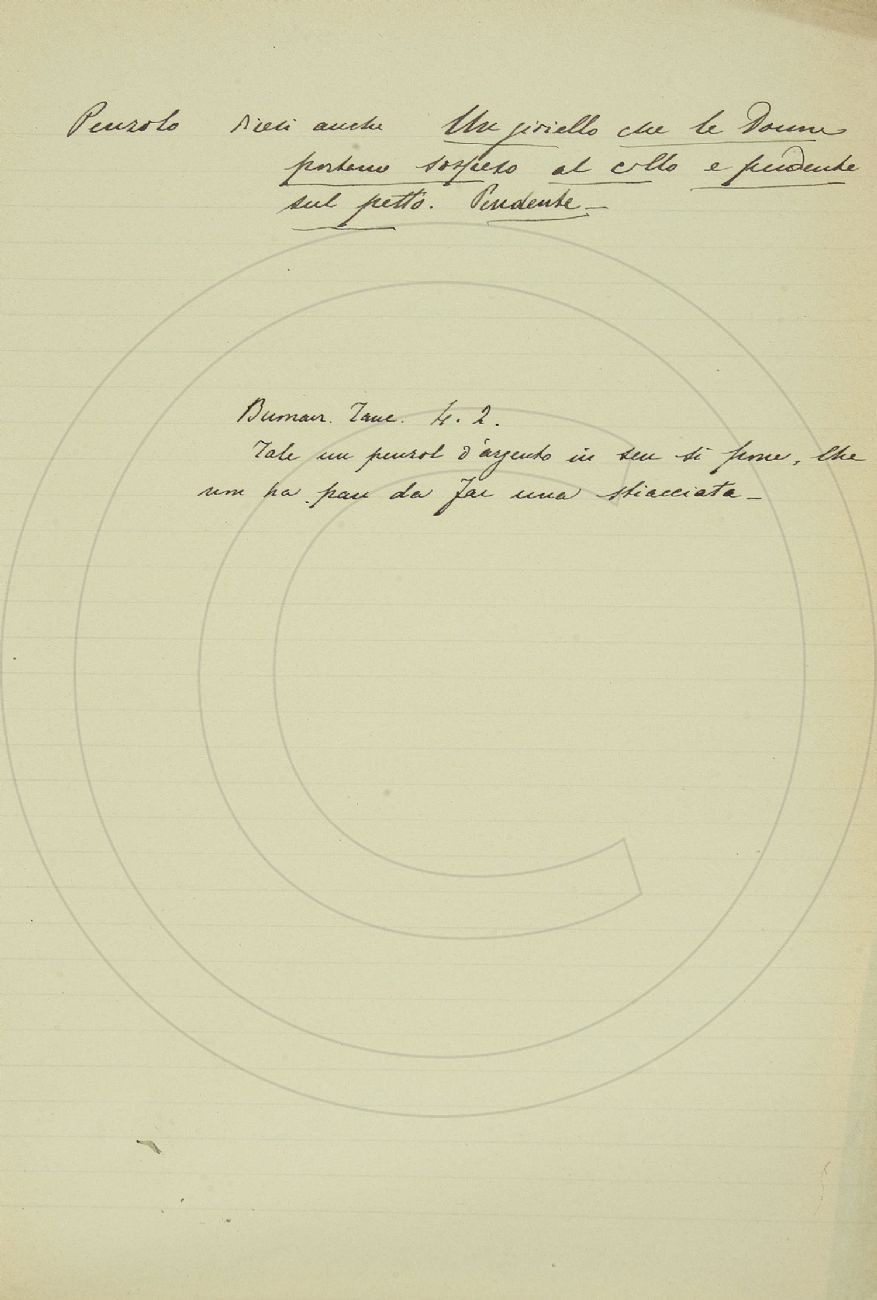 Penzolo dicesi anche Un gioiello che le Donne
portano sospeso al collo e pendente
sul petto. Pendente –
Buonarr. Tanc. 4. 2.
Tale un penzol d'argento in sen si pone, Che
non ha pan da far una stiacciata –